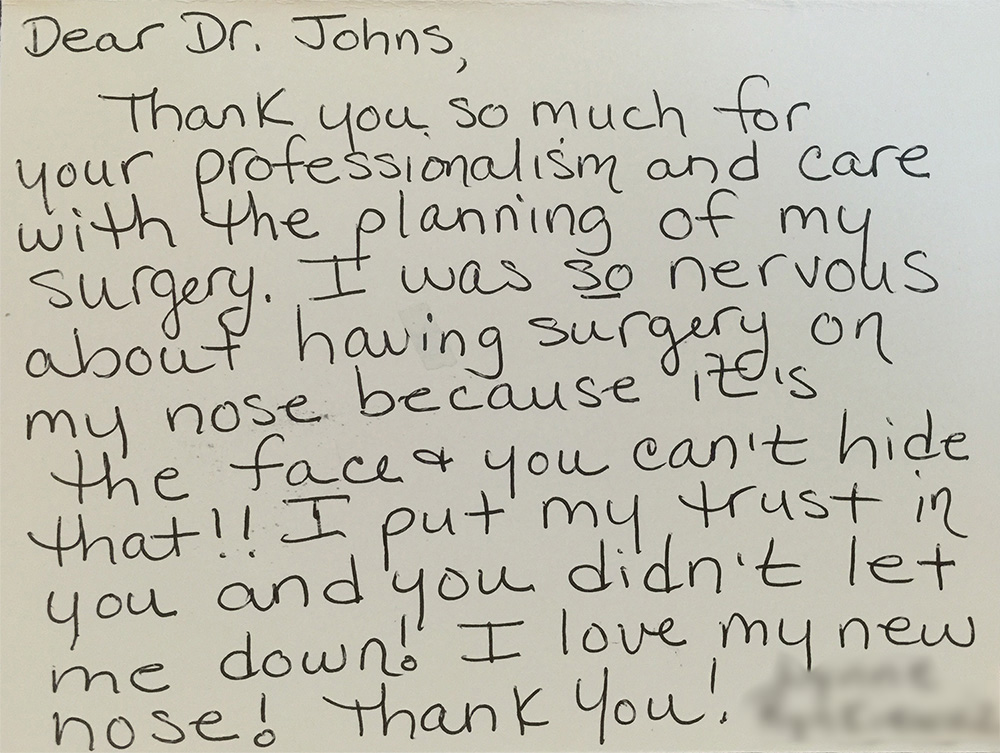 Dear Dr. Johns,
Thank you so much for
your professionalism and care
with the planning of my
surgery. I was so nervous
about having surgery on
my nose because it's
the face & you can't hide
that!! I put my trust in
you and you didn't let
me down! I love my new
nose! Thank You!